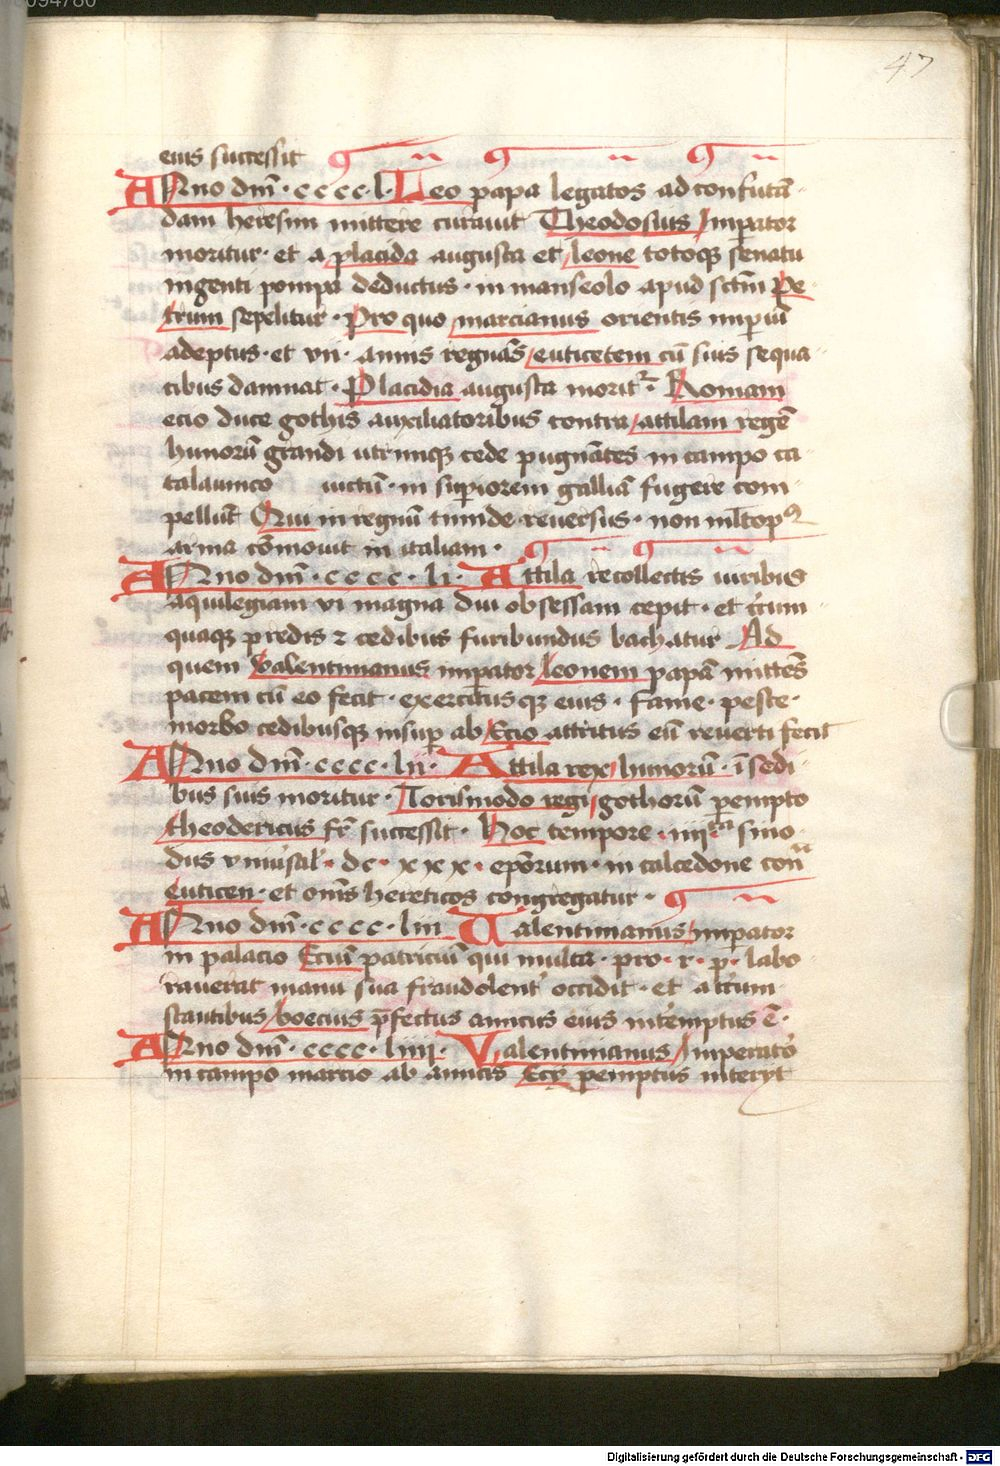 47
eius successit
ANno dm̄ · cccc · l · Leo papa legatos ad confutā-
dam heresim mittere curauit Theodosius Imp̄ator
moritur · et a placida augusta et leone totoq̨ senatu
ingenti pompa deductus · in manseolo apud sctm̄ Pe-
trum sepelitur · Pro quo marcianus orientis imp̄iū
adeptus · et vii · annis regnās euticetem cū suis sequa-
cibus damnat · Placidia augusta morit᷑ · Romam
ecio duce gothis auxiliatoribus contra attilam regē
hunorū grandi utrimq̨ cede pugnātes in campo ca-
talaunico uictū · in sup̄iorem galliā fugere com-
pellūt Qui in regnū inde reuersus · non ml̄top⁹
arma cōmouit in italiam ·
ANno dm̄ · cccc · li · Attila recollectis uiribus
aquilegiam vi magna diu obsessam cepit · et circum-
quaq̨ predis ⁊ cedibus furibundus bachatur Ad
quem valentinianus imp̄ator leonem papā mittēs
pacem cū eo fecit · exercitusq̨ eius · fame · peste ·
morbo cedibusq̨ insup̄ ab Ecio attritus eū reuerti fecit
ANno dm̄ · cccc · lii · Attila rex hunorū · ī sedi-
bus suis moritur · Torismodo regi gothorū p̄empto
theodericus fr̄ successit · Hoc tempore · iiii^ta sino-
dus vniu̓sal̓ · dc · xxx · ep̄orum · in calcedone con^a
euticen · et om̄s hereticos congregatur ·
ANno dm̄ · cccc · liii Ualentinianus imp̄ator
in palacio Eciū patriciū qui multa · pro · r · p̄ · labo-
rauerat manu sua fraudolent̓ occidit · et a circum-
stantibus boecius p̄fectus amicus eius int̓emptus ē ·
ANno dm̄ · cccc · liiii · Valentinianus Imperato᷑
in campo marcio ab amicis Ecij peremptus interijt
Digitalisierung gefördert durch die Deutsche Forschungsgemeinschaft · DFG